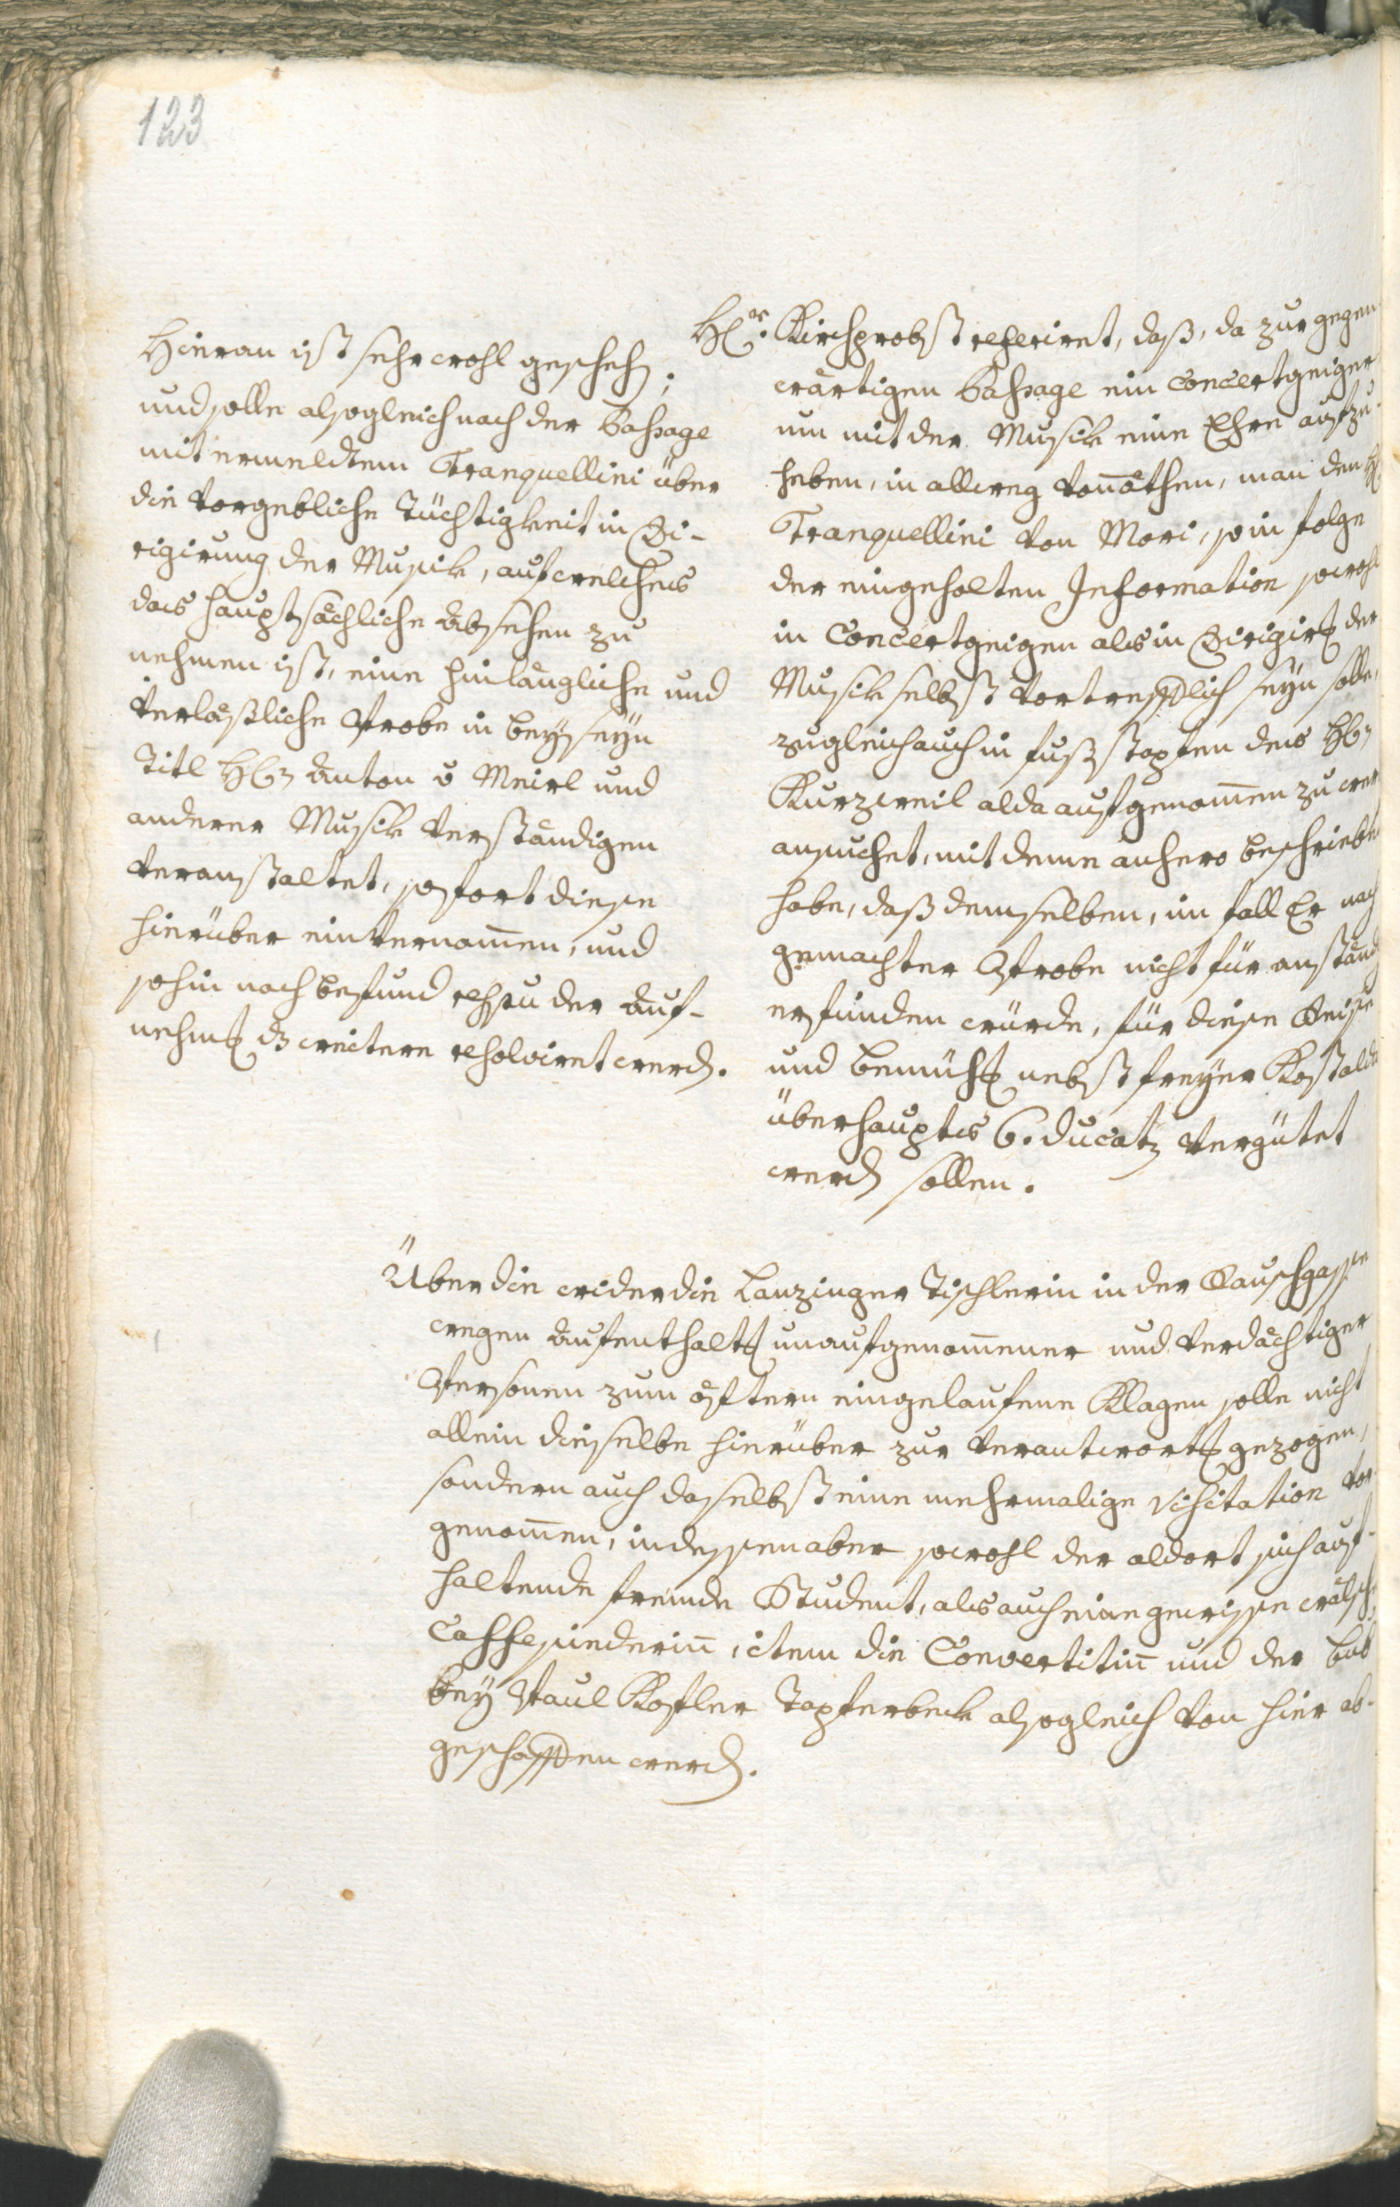 123
Hieran ist sehr wohl geschehen;
und solle alsogleich nach der Passage
mit ermeldtem Tranquellini über
die vorgebliche Tüchtigkeit in Di-
rigirung der Musik, auf welches
das hauptsächliche Absehen zu
nehmen ist, eine hinlängliche und
verläßliche Probe in beyseyn
Titl Hhn Anton v Meirl und
anderer Musik verständigen
veranstaltet, sofort diese
hierüber einvernom̄en, und
sohin nach befund rehsu der Auf-
nehmg dz weitere resolvirt werden.
Hr. Kirchprobst referiret, daß, da zur gegen
wärtigen Passage ein Concertgeiger
um mit der Musik eine Ehre aufzu-
heben, in allweg von̄öthen, man den H
Tranquellini von Mori, so in folge
der eingeholten Information sowohl
in Concertgeigen als in Dirigirg der
Musik selbst vortrefflich seyn solle,
zugleich auch in fußstapfen des Hhn
Kurzweil alda aufgenom̄en zu wer
ansuchet, mit deme anhero beschrieben
habe, daß demselben, im fall Er nach
gemachter Probe nicht für anständ
erfunden würde, für diese Reise
und bemühg nebst freyer Kost alda
überhaupts 6. ducatn vergütet
werden sollen.
Über die wider die Lanzinger Tischlerin in der Rauschgasse
wegen Aufenthalts unaufgenom̄ener und verdächtiger
Personen zum öftern eingelaufene Klagen solle nicht
allein dieselbe hierüber zur verantwortg gezogen,
sondern auch daselbst eine mehrmalige Visitation vor
genom̄en, indessen aber sowohl der aldort sich auf-
haltende fremde Student, als auch eine gewisse wälsche
Caffesiederin̄, item die Convertitin̄ und der bub
bey Paul Kofler Tapferbeck alsogleich von hier ab-
geschaffen werden.